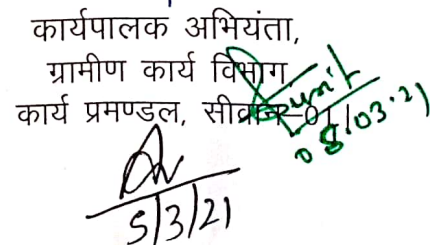 कार्यपालक अभियंता,
ग्रामीण कार्य विभाग
कार्य प्रमण्डल, सीवान-01
08/03.21
5/3/21